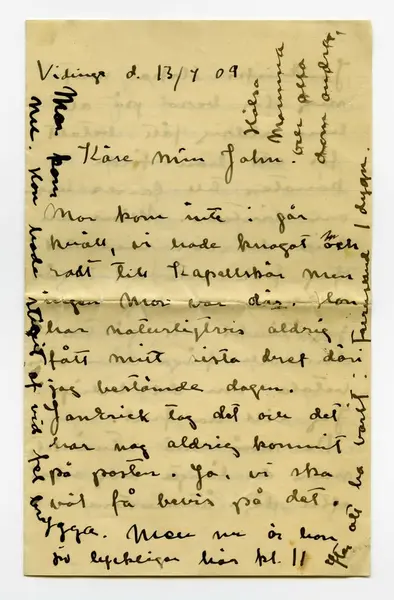 Vidinge d. 13/7 09
Hälsa
Mamma
och alla
dom andra,
Käre min John.
Mor kom inte i går
kväll, vi hade knogat och
rodt till Kapellskär men
ingen Mor var där. Hon
har naturligtvis aldrig
fått mitt sista bref däri
jag bestämde dagen.
Jan Erick tog det och det
har nog aldrig kommit
på posten. Ja, vi ska
väl få bevis på det.
Men nu är hon
lyckligen här kl. 11
Mor kom
nu. Hon hade stigit af vid fel brygga.
efter att ha varit i Furusund 1 dygn.